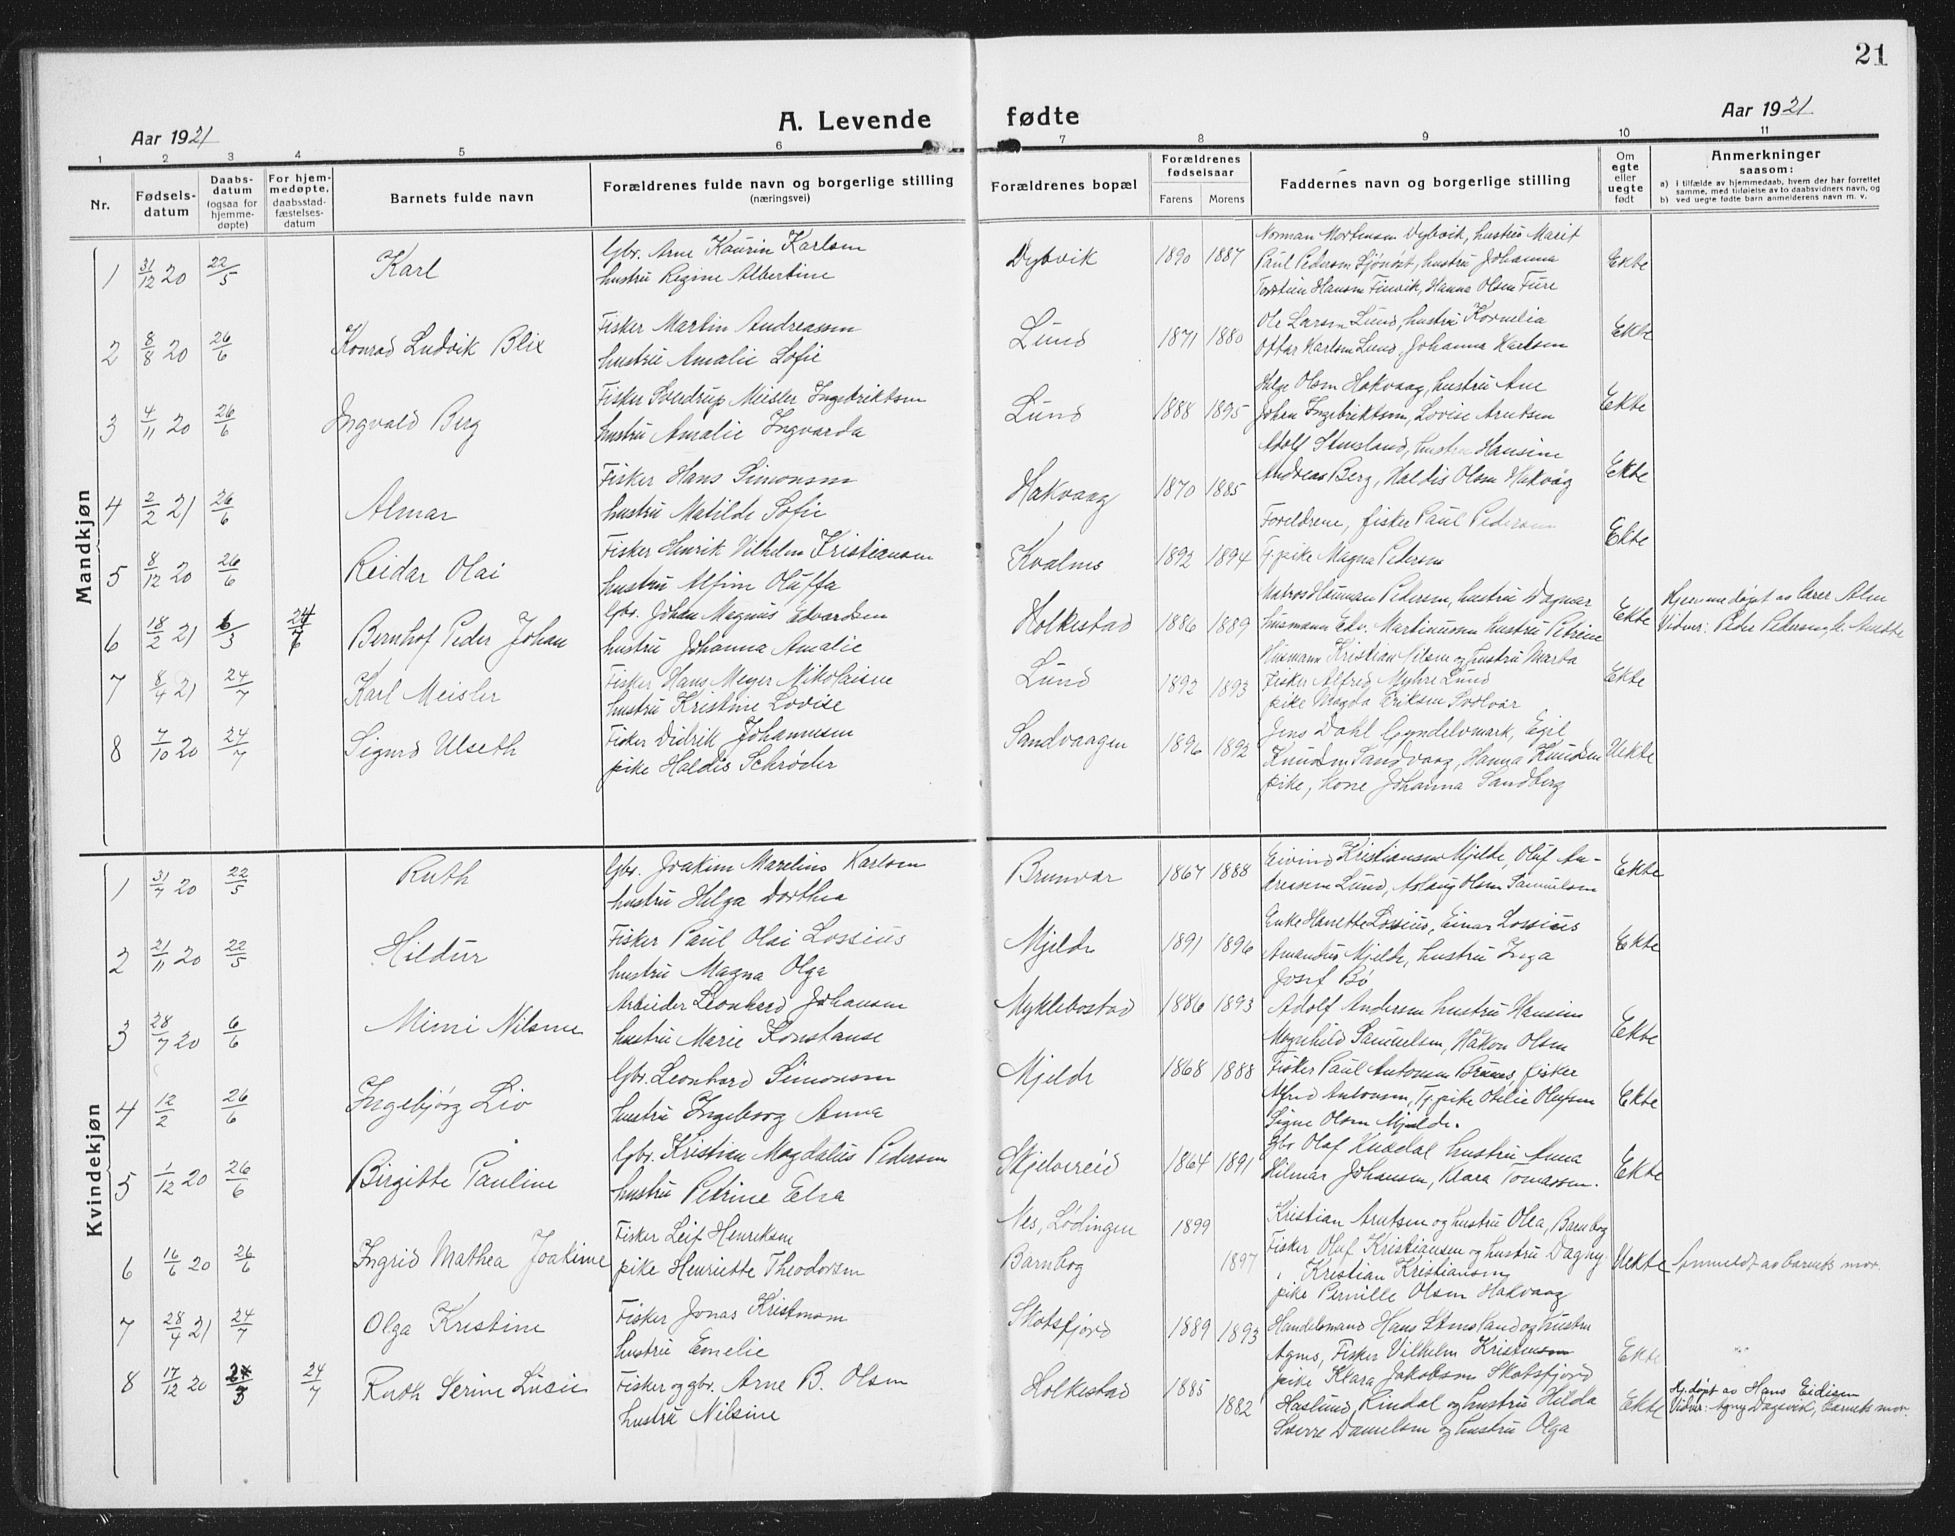 21
A. Levende fødte
Aar 1921
Aar 1921
1 2 3 4 5 6 7 8 9 10 11
Nr.
Fødsels-
datum
Daabs-
datum
(ogsaa for
hjemme-
døpte)
For hjem-
medøpte,
daabsstad-
fæstelses-
datum
Barnets fulde navn
Forældrenes fulde navn og borgerlige stilling
(næringsvei)
Forældrenes bopæl
Forældrenes
fødselsaar
Farens Morens
Faddernes navn og borgerlige stilling
Om
egte
eller
uegte
født
Anmerkninger
saasom:
a) i tilfælde av hjemmedaab, hvem der har forrettet
samme, med tilføielse av to daabsvidners navn, og
b) ved uegte fødte barn anmelderens navn m. v.
Mandkjøn
1 31/12 20 22/5 Karl
Gbr. Arne Kaurin Karlsen
hustru Regine Albertine
Dybvik 1890 1887
Norman Mortensen Dybvik, hustru Marit
Paul Pedersen Sjönöst, hustru Johanna
Torstein Hansen Finvik, Hanna Olsen Fure
Ekte
2 8/8 20 26/6 Konrad Ludvik Blix
Fisker Martin Andreassen
hustru Amalie Sofie
Lund 1871 1880
Ole Larsen Lund, hustru Kornelia
Ottar Karlsen Lund, Johanna Karlsen
Ekte
3 4/11 20 26/6 Ingvald Berg
Fisker Sverdrup Meisler Ingebriktsen
hustru Amalie Ingvarda
Lund 1888 1895
Helge Olsen Hakvaag, hustru Ane
Johan Ingebriktsen, Lovise Arntsen
Adolf Stensland, hustru Hansine
Ekte
4 2/2 21 26/6 Almar
Fisker Hans Simonsen
hustru Matilde Sofie
Hakvaag 1870 1885
Andreas Berg, Haldis Olsen Hakvåg
Ekte
5 8/12 20 26/6 Reidar Olai
Fisker Henrik Vilhelm Kristiansen
hustru Alfine Oluffa
Kvalnes 1892 1894
Foreldrene, fisker Paul Pedersen
Tj. pike Magna Pedersen
Ekte
6 18/2 21 6/3 24/7 Bernhof Peder Johan
Gbr. Johan Magnus Edvardsen
hustru Johanna Amalie
Holkestad 1886 1889
Matros Hauman Pedersen, hustru Dagnar
Husmann Edv. Martinussen hustru Petrine
Husmann Kristian Nilsen og hustru Marta
Ekte
Hjemmedøpt av lærer Alen
Vidner: Peder Pedersen, k. Anette
7 8/4 21 24/7 Karl Meisler
Fisker Hans Meyer Nikolaisen
hustru Kristine Lovise
Lund 1892 1893
Fisker Alfred Myhre Lund
pike Magda Eriksen Svolvær
Ekte
8 7/10 20 24/7 Sigurd Ulseth
Fisker Didrik Johannesen
pike Haldis Schrøder
Sandvaagen 1896 1892
Jens Dahl Gyndelvmark, Egil
Knudsen Sandvaag, Hanna Knudsen
pike, kone Johanna Sandberg
Uekte
Kvindekjøn
1 31/7 20 22/5 Ruth
Gbr. Joakim Marelius Karlsen
hustru Helga Dorthea
Brunvær 1867 1888
Eivind Kristiansen Mjelde, Oluf An-
dreassen Lund, Aslaug Olsen Samuelsen
Ekte
2 21/11 20 22/5 Hildur
Fisker Paul Olai Lossius
hustru Magna Olga
Mjelde 1891 1896
Enke Hanette Lossius, Einar Lossius
Amandus Mjelde, hustru Inga
Josef Bö
Ekte
3 28/7 20 6/6 Mimi Nilsine
Arbeider Leonhard Johansen
hustru Marie Konstanse
Myklebostad 1886 1893
Adolf Andersen hustru Hansine
Magnhild Samuelsen, Håkon Olsen
Ekte
4 12/2 26/6 Ingebjörg Liv
Gbr. Leonhard Simonsen
hustru Ingeborg Anna
Mjelde 1868 1888
Fisker Paul Antonsen Brænes, fisker
Alfred Antonsen, Tj. pike Otelie Olufsen
Signe Olsen Mjelde.
Ekte
5 1/12 20 26/6 Birgitte Pauline
Gbr. Kristian Magdalus Pedersen
hustru Petrine Elsa
Skjelvereid 1864 1891
Gbr Olaf Knædal hustru Anna
Hilmar Johansen, Klara Tomassen.
Ekte
6 16/6 20 26/6 Ingrid Mathea Joakime
Fisker Leif Henriksen
pike Henriette Theodorsen
Nes, Lödingen 1899
Barnbog 1897
Kristian Arntsen og hustru Olea, Barnbog
Fisker Oluf Kristiansen og hustru Dagny
" Kristian Kristiansen
pike Pernille Olsen Hakvaag
Uekte Anmeldt av barnets mor.
7 28/4 21 24/7 Olga Kristine
Fisker Jonas Kristensen
hustru Emelie
Skotsfjord 1889 1893
Handelsmand Hans Stensland og hustru
Agnes, Fisker Vilhelm Kristensen
pike Klara Jakobsen Skotsfjord
Ekte "
8 17/12 20 24/3 24/7 Ruth Serine Lusie
Fisker og gbr. Arne B. Olsen
hustru Nilsine
Holkestad 1885 1882
Haslund, Rindal og hustru Hilda
Sverre Danielsen og hustru Olga
Ekte
Hj. døpt av Hans Eidissen
Vidner: Agny Dagsvik, barnets mor.